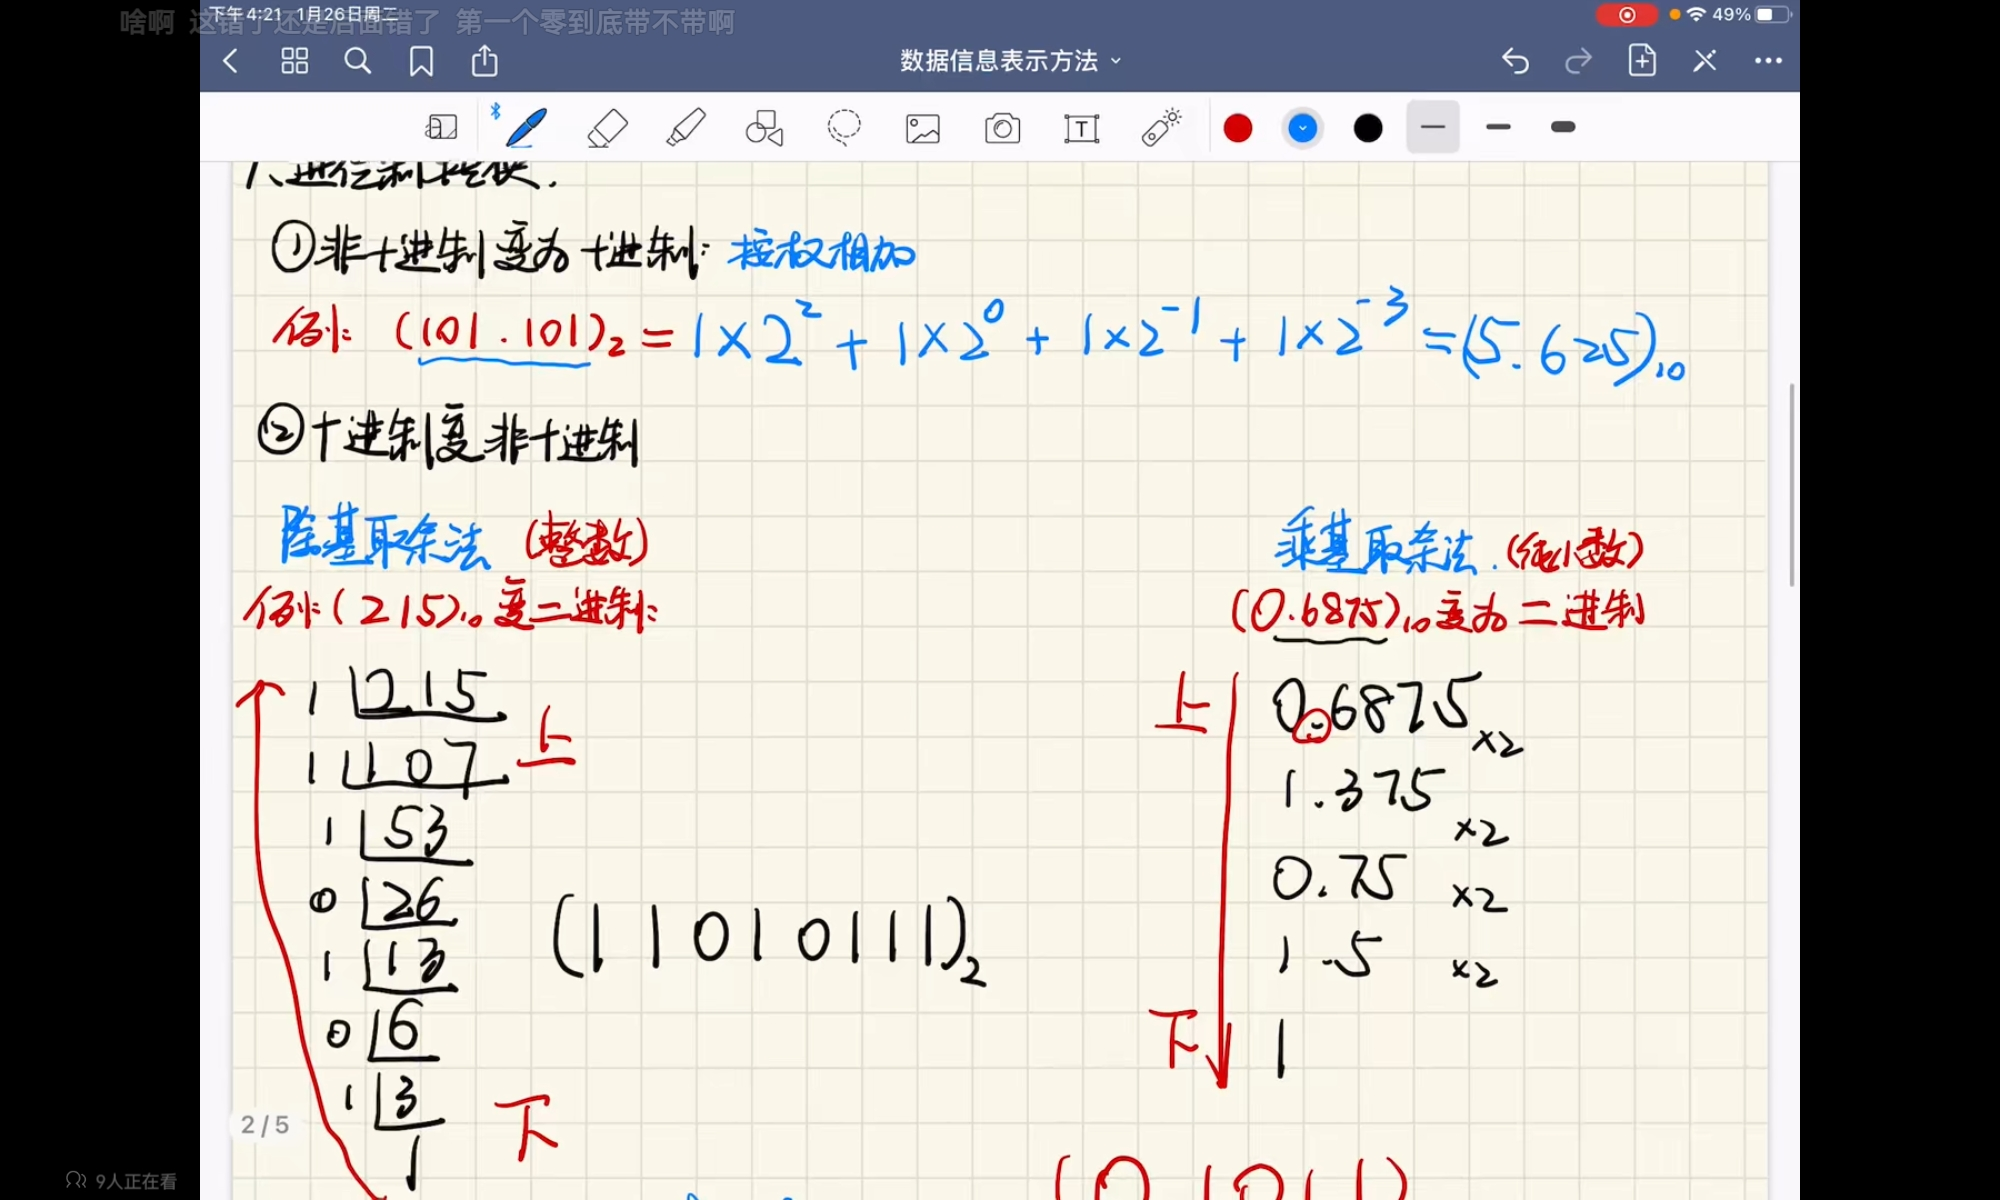 啥啊 这错了还是后面错了 第一个零到底带不带啊
下午4:21 1月26日周二
49%
数据信息表示方法
T
1、进位制转换.
①非十进制变为十进制: 按权相加
例: (101.101)₂ = 1×2² + 1×2⁰ + 1×2⁻¹ + 1×2⁻³ = (5.625)₁₀
②十进制变非十进制
除基取余法 (整数)
例: (215)₁₀变二进制:
1 215
1 107
上
1 53
0 26
1 13
0 6
1 3
下
1
(11010111)₂
乘基取余法. (纯小数)
(0.6875)₁₀变为二进制
上
0.6875 ×2
1.375 ×2
0.75 ×2
1.5 ×2
下
1
(0.1011)
2 / 5
9人正在看